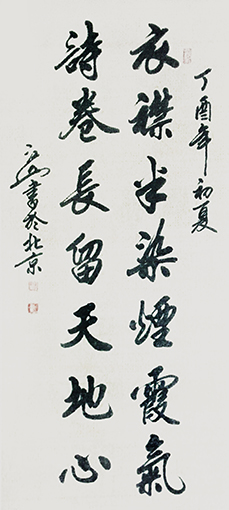 丁酉年初夏
衣襟半染煙霞氣
詩卷長留天地心
書於北京